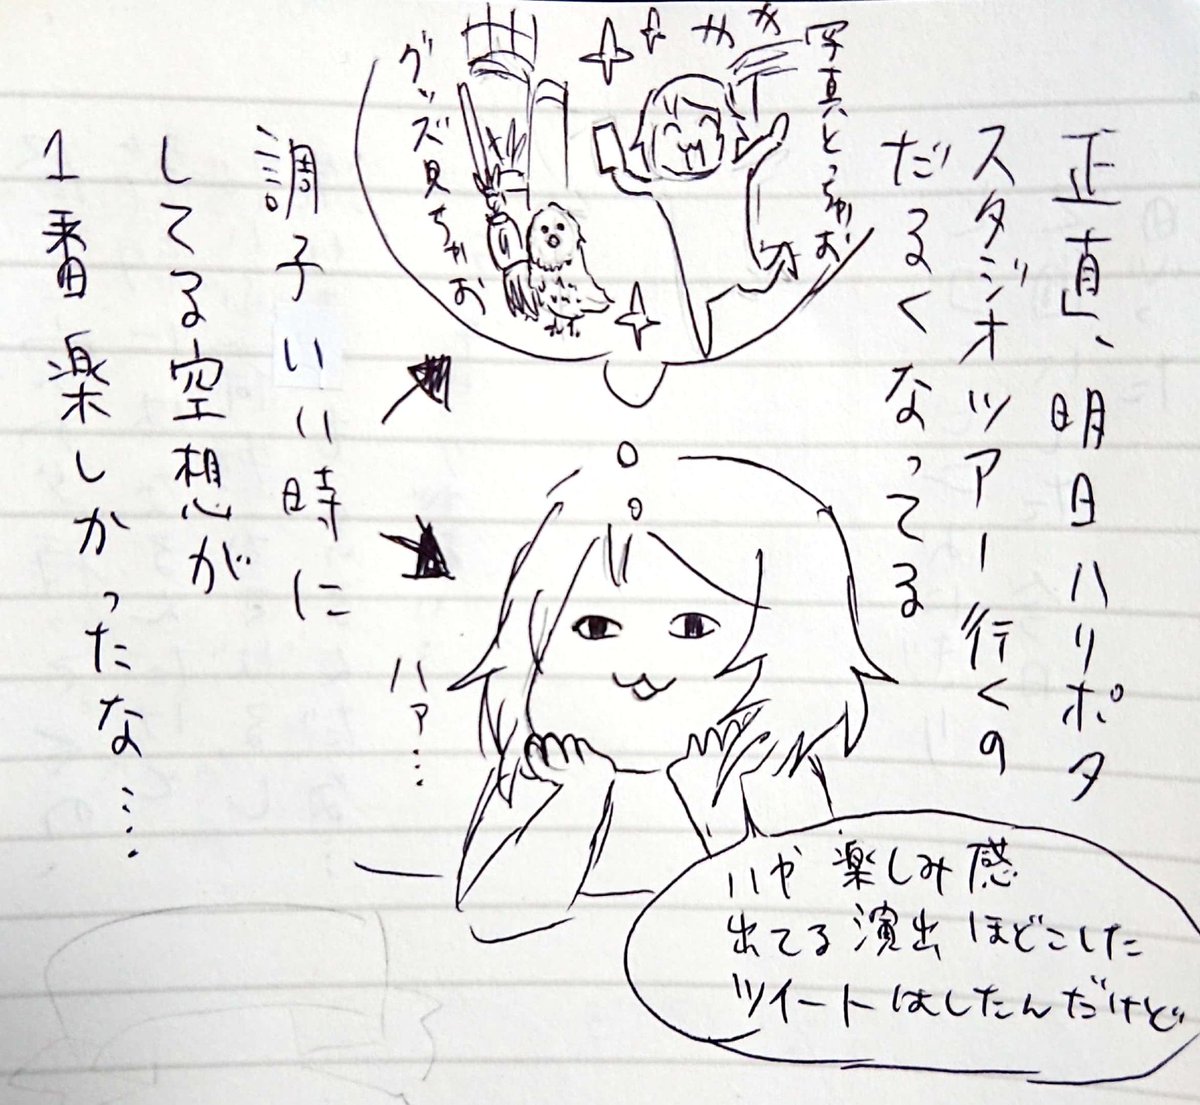 正直、明日ハリポタ
スタジオツアー行くの
だるくなってる
写真とっちゃお
グッズ見ちゃお
調子いい時に
してる空想が
1番楽しかったな…
ハァ…
いや 楽しみ感
出てる演出 ほどこした
ツイートはしたんだけど